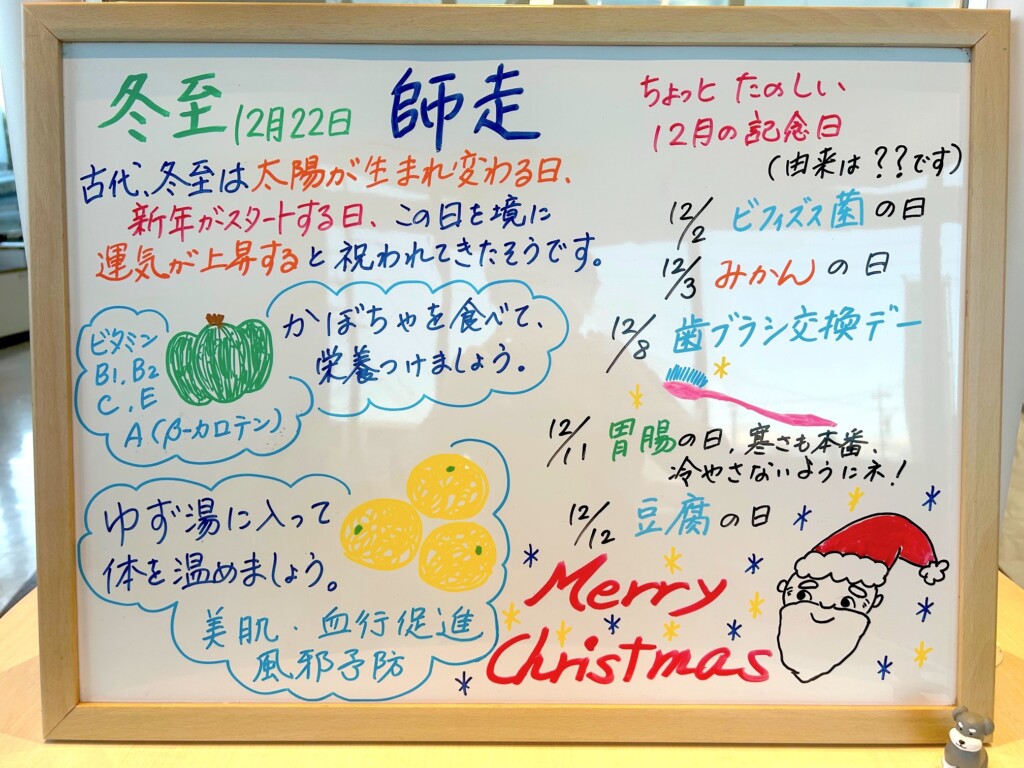 冬至 12月22日
師走
古代、冬至は太陽が生まれ変わる日、
新年がスタートする日、この日を境に
運気が上昇すると祝われてきたそうです。
ビタミン
B1、B2
C、E
A(β-カロテン)
かぼちゃを食べて、
栄養つけましょう。
ゆず湯に入って
体を温めましょう。
美肌・血行促進
風邪予防
ちょっと たのしい
12月の記念日
(由来は??です)
12/2 ビフィズス菌の日
12/3 みかんの日
12/8 歯ブラシ交換デー
12/11 胃腸の日、寒さも本番、
冷やさないようにネ!
12/12 豆腐の日
Merry
Christmas